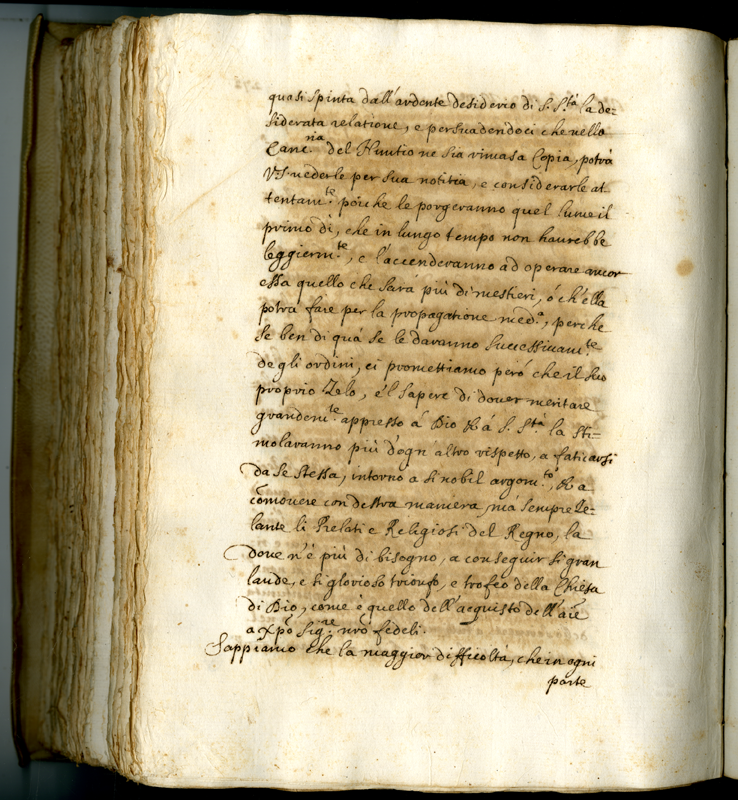 quasi spinta dall'ardente desiderio di S. S.tà la de=
siderata relatione, e persuadendoci che nello
Canc.ria del Nuntio ne sia rimasa Copia, potrà
V.S. uederle per sua notitia, e considerarle at
tentam.te poiche le porgeranno quel lume il
primo dì, che in lungo tempo non haurebbe
leggierm.te, e l'accenderanno ad operare ancor
essa quello che sarà più di mestieri, ó ch'ella
potrà fare per la propagatione med.a, perche
se ben di quà se le daranno successiuam.te
de gli ordini, ci promettiamo però che il suo
proprio Zelo, e'l sapere di douer meritare
grandem.te appresso á Dio & á S. S.tà la sti=
molaranno più d'ogn'altro rispetto, a faticarsi
da se stessa, intorno a si nobil argom.to, & a
com̃ouere con destra maniera, mà sempre Ze=
lante li Prelati e Religiosi del Regno, la
doue n'è più di bisogno, a conseguir si gran
laude, e si glorioso trionfo, e trofeo della Chiesa
di Dio, come è quello dell'acquisto dell'aie
a Xpo Sig.re nro fedeli.
Sappiamo che la maggior difficoltà, che in ogni
parte